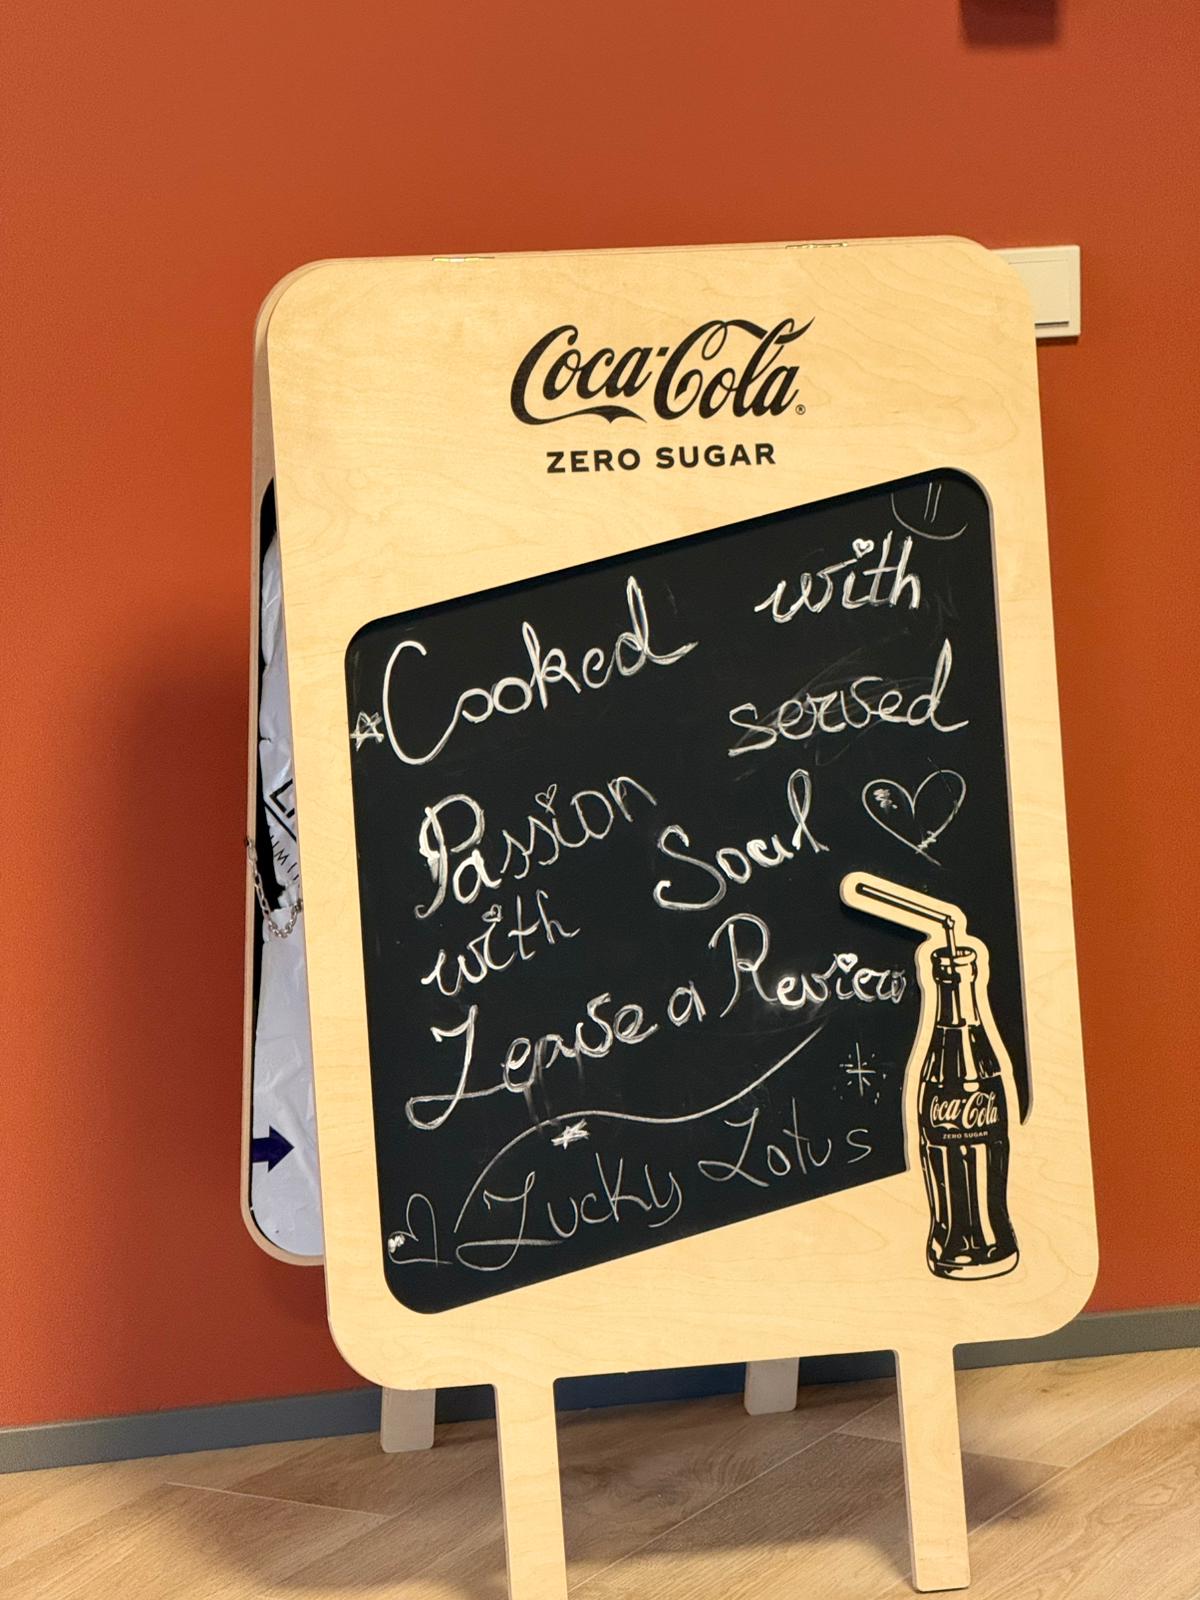 Coca-Cola®
ZERO SUGAR
Cooked with
Passion served
with Soul
Leave a Review
Lucky Lotus
Coca-Cola
ZERO SUGAR